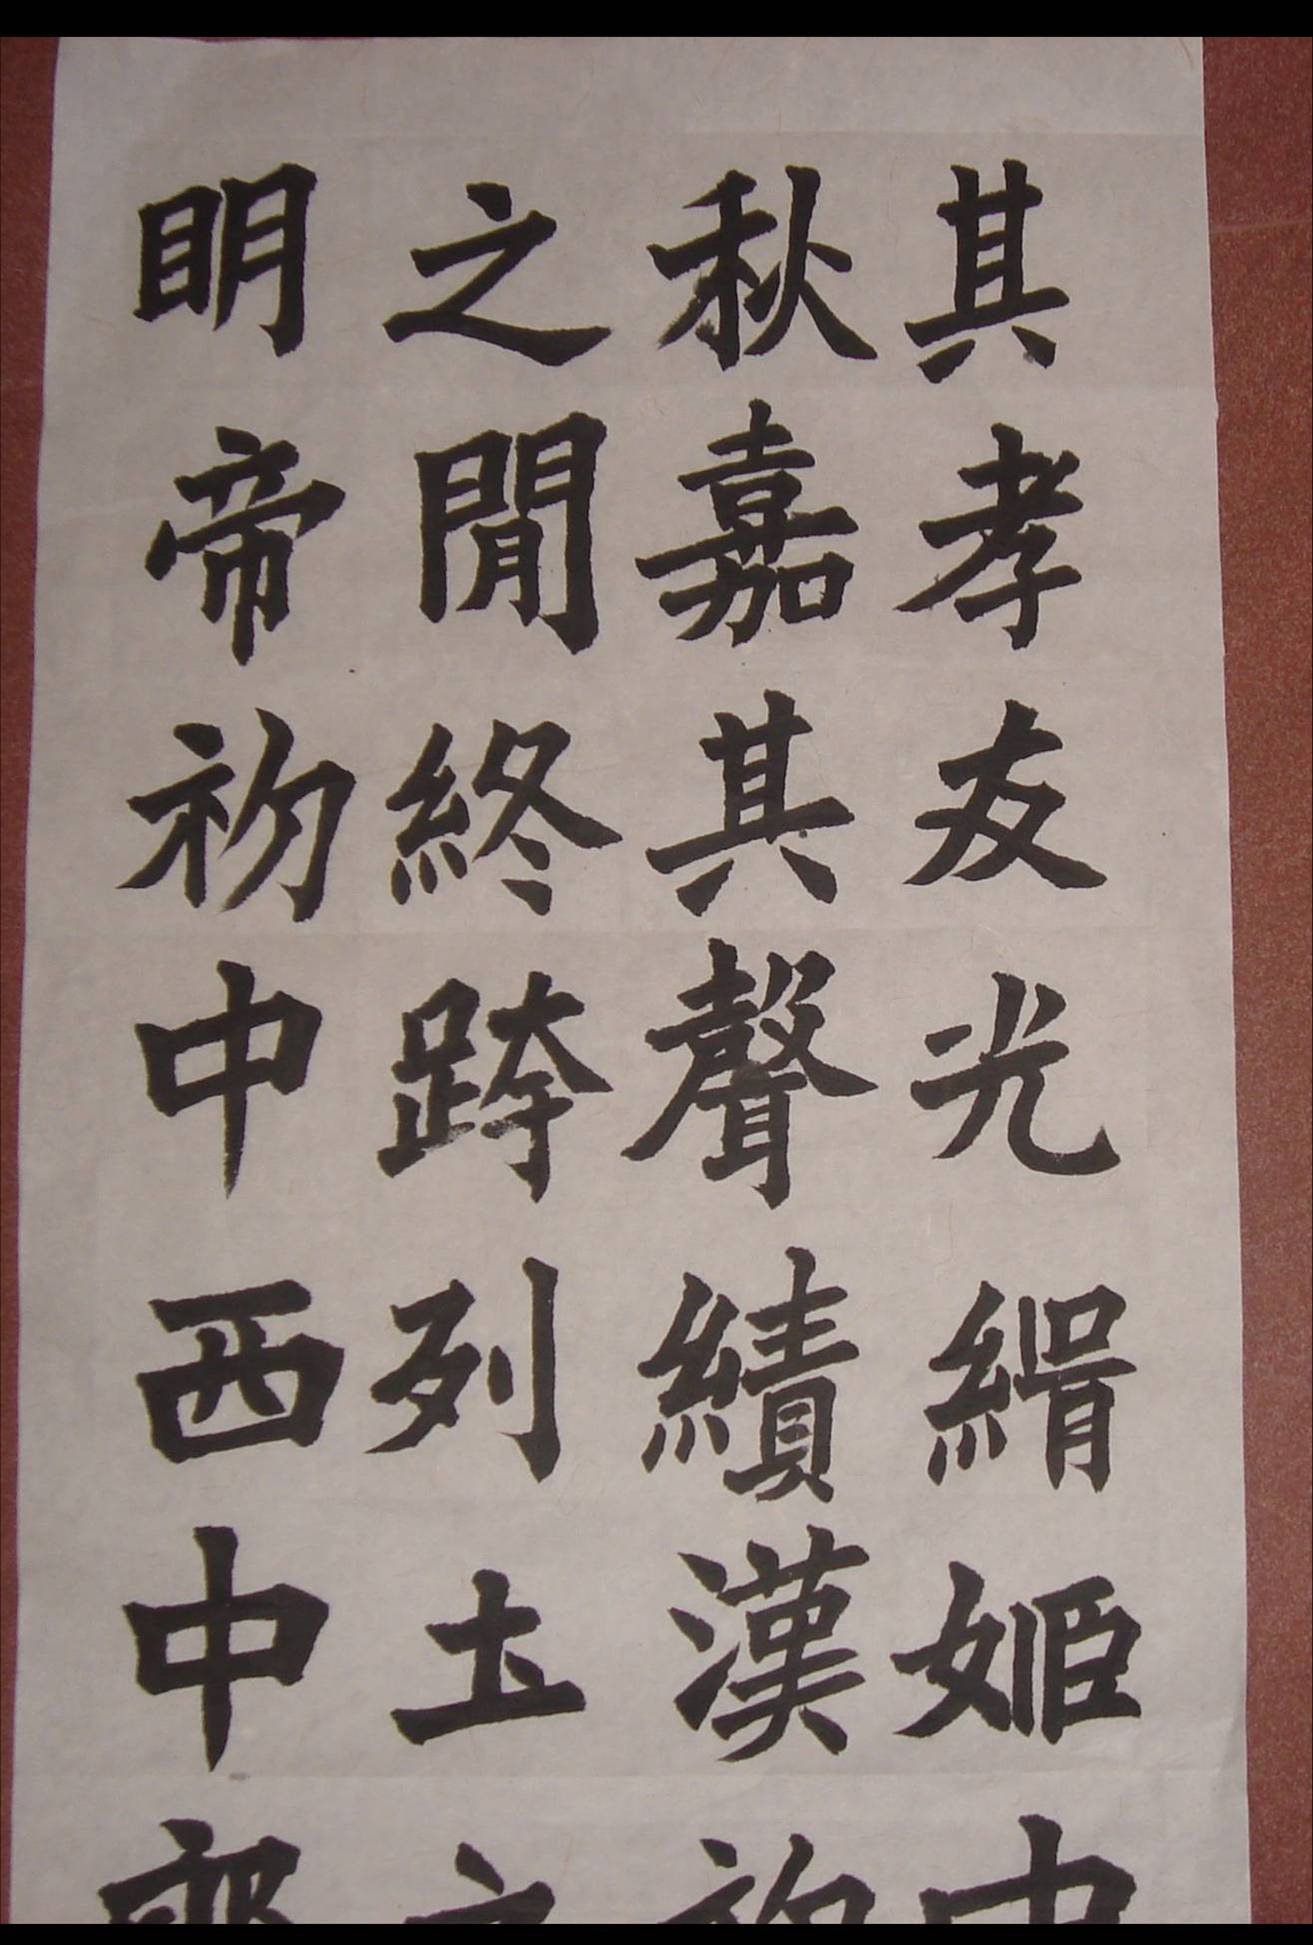 其孝友光緝姬中
秋嘉其聲績漢初
之閒終跨列土之
明帝初中西中郎